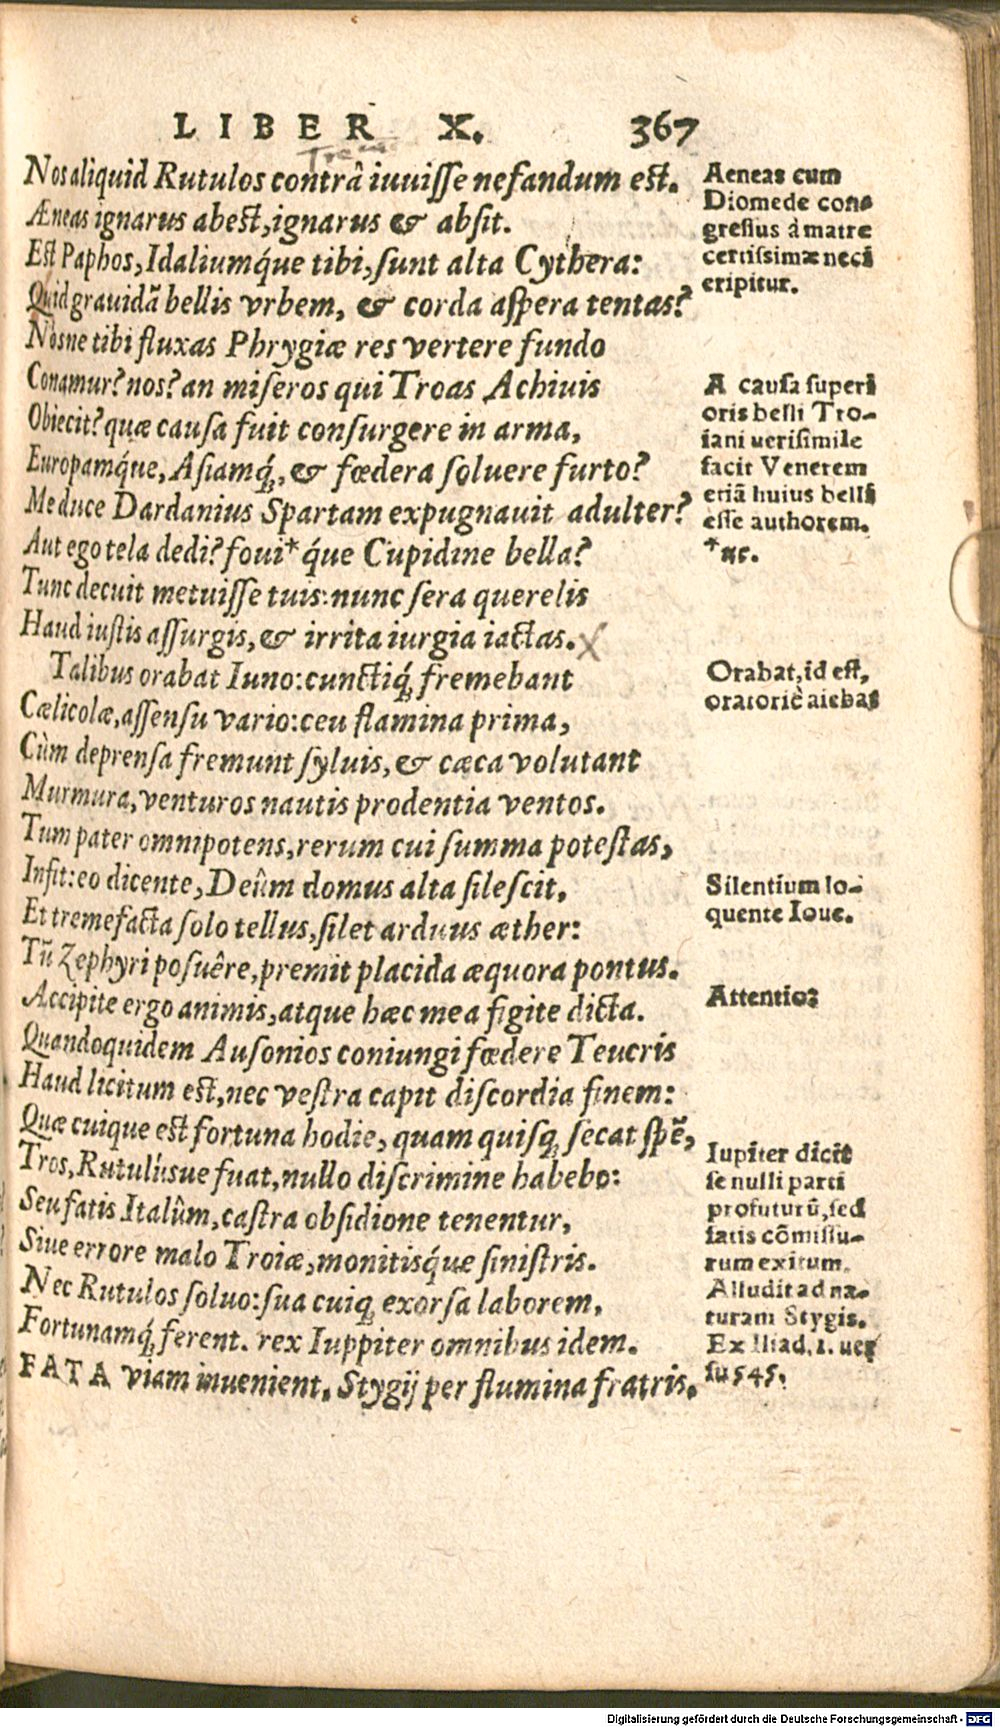 LIBER X. 367
Nos aliquid Rutulos contrâ iuuisse nefandum est.
Æneas ignarus abest, ignarus & absit.
Est Paphos, Idaliumq́ue tibi, sunt alta Cythera:
Quid grauidã bellis vrbem, & corda aspera tentas?
Nosne tibi fluxas Phrygiæ res vertere fundo
Conamur? nos? an miseros qui Troas Achiuis
Obiecit? quæ causa fuit consurgere in arma,
Europamq́ue, Asiamq́;, & fœdera soluere furto?
Me duce Dardanius Spartam expugnauit adulter?
Aut ego tela dedi? foui* q́ue Cupidine bella?
Tunc decuit metuisse tuis: nunc sera querelis
Haud iustis assurgis, & irrita iurgia iactas. X
Talibus orabat Iuno: cunctiq́; fremebant
Cælicolæ, assensu vario: ceu flamina prima,
Cùm deprensa fremunt syluis, & cæca volutant
Murmura, venturos nautis prodentia ventos.
Tum pater omnipotens, rerum cui summa potestas,
Infit: eo dicente, Deûm domus alta silescit,
Et tremefacta solo tellus, silet arduus æther:
Tũ Zephyri posuêre, premit placida æquora pontus.
Accipite ergo animis, atque hæc mea figite dicta.
Quandoquidem Ausonios coniungi fœdere Teucris
Haud licitum est, nec vestra capit discordia finem:
Quæ cuique est fortuna hodie, quam quisq; secat spẽ,
Tros, Rutulúsue fuat, nullo discrimine habebo:
Seu fatis Italûm, castra obsidione tenentur,
Siue errore malo Troiæ, monitisq́ue sinistris.
Nec Rutulos soluo: sua cuiq; exorsa laborem,
Fortunamq́; ferent. rex Iuppiter omnibus idem.
FATA viam inuenient. Stygij per flumina fratris,
Aeneas cum
Diomede con-
gressus à matre
certissimæ neci
eripitur.
A causa superi
oris belli Tro-
iani uerisimile
facit Venerem
etiã huius belli
esse authorem.
*ue.
Orabat, id est,
oratoriè aiebat
Silentium lo-
quente Ioue.
Attentio:
Iupiter dicit
se nulli parti
profuturũ, sed
fatis cõmissu-
rum exitum.
Alludit ad na-
turam Stygis.
Ex Iliad. 1. uer
su 545.
Digitalisierung gefördert durch die Deutsche Forschungsgemeinschaft - DFG